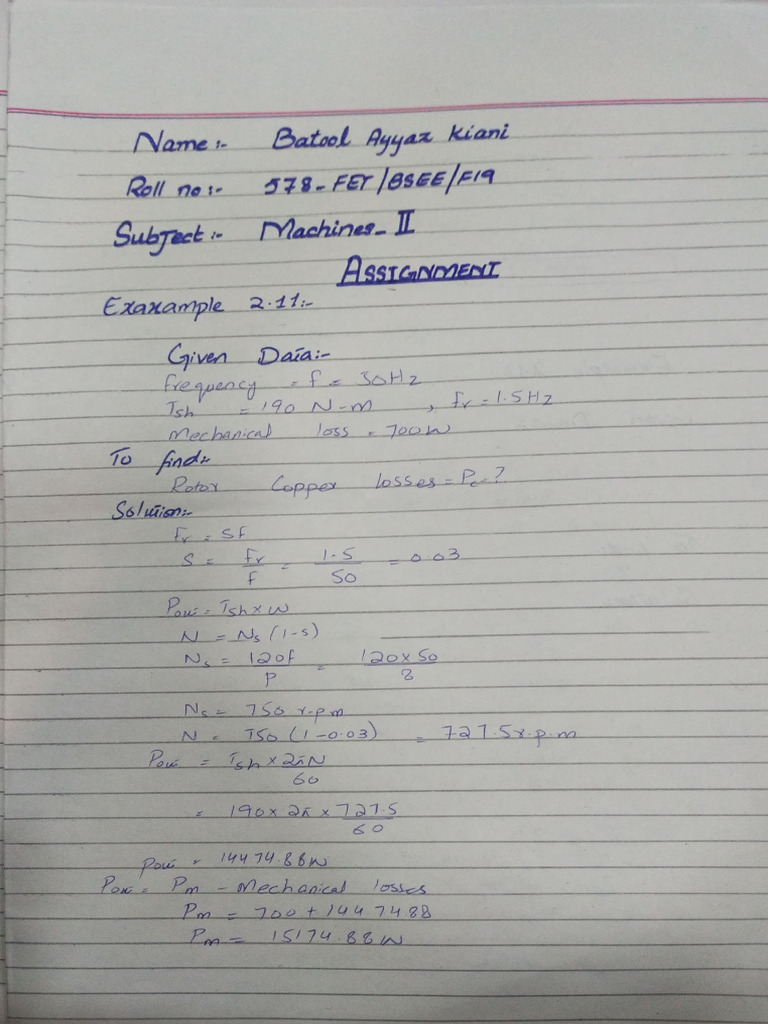 Name:- Batool Ayyaz Kiani
Roll no:- 578-FET/BSEE/F19
Subject:- Machines-II
ASSIGNMENT
Exaxample 2.11:-
Given Data:-
frequency = f = 30Hz
Tsh = 190 N-m , fr = 1.5Hz
Mechanical loss = 700W
To find:-
Rotor Copper losses = Pc = ?
Solution:-
Fr = Sf
S = Fr/f = 1.5/50 = 0.03
Pout = Tsh x W
N = Ns (1-s)
Ns = 120f/P = 120x50/8
Ns = 750 r.p.m
N = 750 (1-0.03) = 727.5r.p.m
Pout = Tsh x 2πN/60
= 190 x 2π x 727.5/60
Pout = 14474.88W
Pout = Pm - Mechanical losses
Pm = 700 + 1447488
Pm = 15174.88W